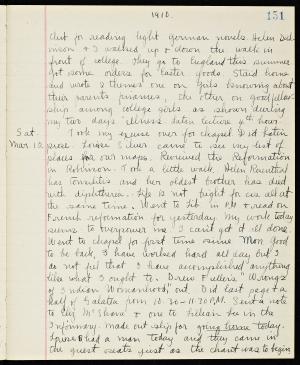 1910.
151
Out for reading light german novels. Helen Dick-
inson + I walked up + down the walk in
front of college. They go to England this summer.
Got some orders for Easter goods. Staid home
and wrote 2 themes one on Girls knowing about
their parents finances, the other on goodfellow-
ship among college girls as shown during
my two days' illness dates lecture 4th hour.
Sat. Took my excuse over for chapel. Did Latin
Mar. 12 prose. Louise S. over came to see my list of
places for our maps. Reviewed the Reformation
in Robinson. Took a little walk. Helen
has tonsilitis and her oldest brother has died
with diphtheria. Life is not fight for us all at
the same time. Went to Lib in P.M. + read on
French reformation for yesterday. My work today
seems to overpower me. I can't get it all done.
Went to chapel for first time since Mon. Good
to be back. I have worked hard all day but I
do not feel that I have accomplished anything
like what I ought to. Drew Fuller's "Wrongs
of Indian Womanhood" out. Did last page + a
half of Galatea from 10.30 - 11.20 P.M. Sent a note
to Lucy Mc Shane + one to Lillian Lee in the
Infirmary. Made out slip for going home today.
Louise B had a man today and they came in
the guest seats just as the chant was to begin